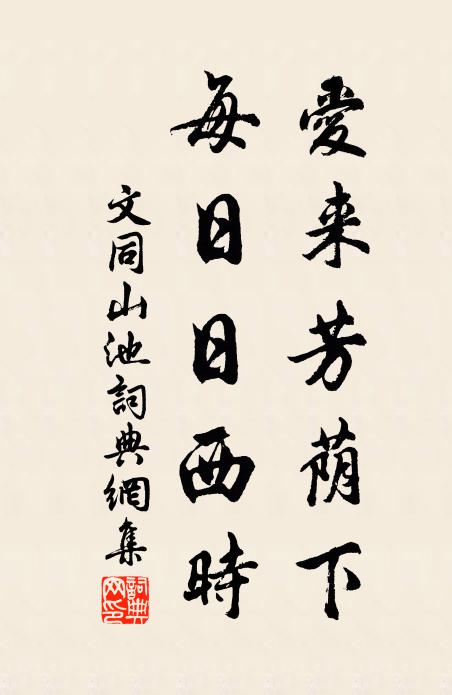 愛来芳荫下
每日日西時
文同山池詞典網集
詞典网印